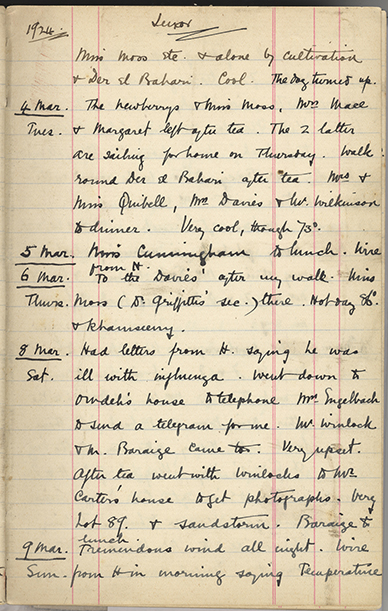 1924. Luxor
Miss Moss etc. & alone by cultivation
& Der el Bahari. Cool. The bag turned up.
4 Mar. The Newberrys & Miss Moss, Mrs Mace
Tues. & Margaret left after tea. The 2 latter
are sailing for home on Thursday. Walk
round Der el Bahari after tea. Mrs &
Miss Quibell, Mrs Davies & Mr Wilkinson
to dinner. Very cool, though 73°.
5 Mar. Miss Cunningham to lunch. Wire
from H.
6 Mar. To the Davies' after my walk. Miss
Thurs. Moss (Dr Griffiths' sec.) there. Hot day 86°
& khamseeny.
8 Mar. Had letters from H. saying he was
Sat. ill with influenza. Went down to
Owdeh's house to telephone Mrs Engelbach
to send a telegram for me. Mr Winlock
& M. Baraize came to. Very upset.
After tea went with Winlocks to Mr
Carter's house to get photographs. Very
hot 89. & sandstorm. Baraize to
lunch
9 Mar. Tremendous wind all night. Wire
Sun. from H in morning saying Temperature